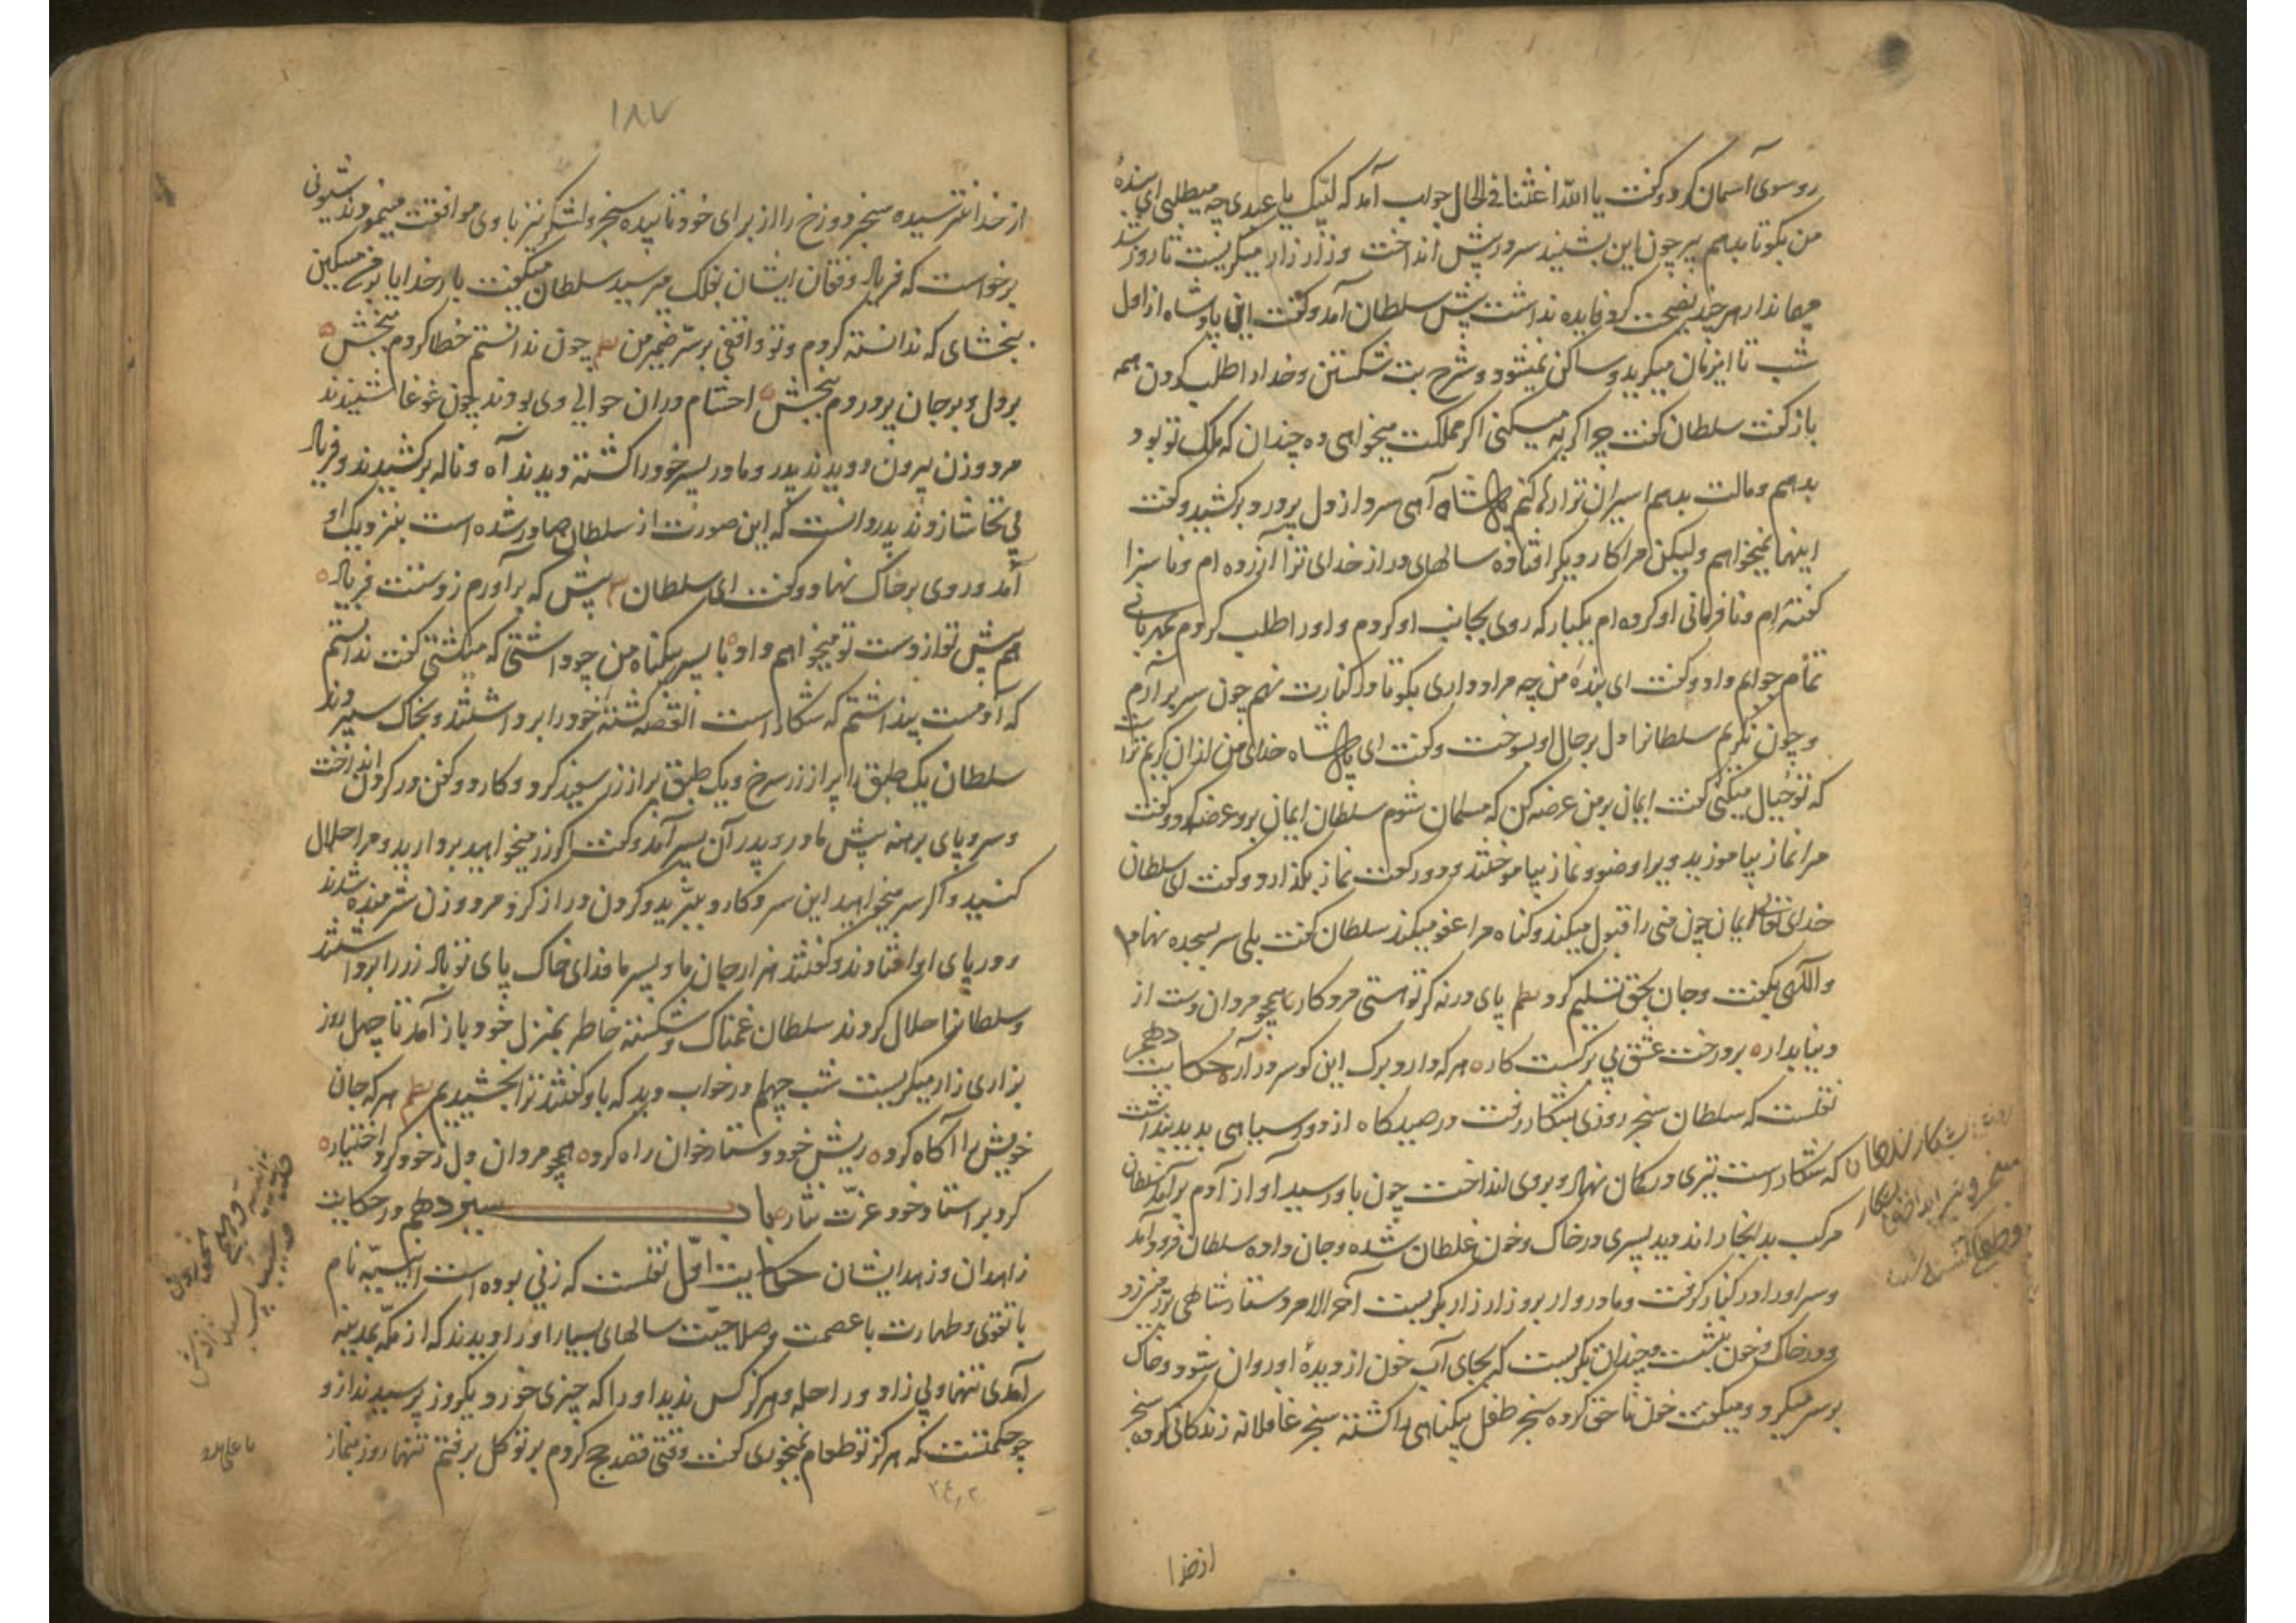 روسوی آسمان کرد و کفت یا الله اغثنا فی الحال جواب آمد که لبیک یا عبدی چه میطلبی ای بندهٔ
من بکو تا بدهم پیر چون این بشنید سر در پیش انداخت و زار زار میکریست تا روز شد
هر چند نصیحت کرد فایده نداشت پیش سلطان آمد و کفت این پادشاه از اول
شب تا این زمان میکرید و ساکن نمیشود و شرح بت شکستن و خدا را طلب کردن همه
باز کفت سلطان کفت چرا کریه میکنی اکر مملکت میخواهی ده چندان که ملک تو بود
بدهم و مالت بدهم اسیران ترا رها کنم پادشاه آهی سرد از دل پر درد برکشید و کفت
اینها نمیخواهم ولیکن مرا کار دیکر افتاده سالهای دراز خدای ترا آزرده ام و ناسزا
کفته ام و نافرمانی او کرده ام یکبار که روی بجانب او کردم و او را طلب کردم بمهربانی
تمام جوابم داد و کفت ای بندهٔ من چه مراد داری بکو تا در کنارت نهم چون سر برآرم
و چون نکریم سلطانرا دل بر حال او بسوخت و کفت ای پادشاه خدای من از ان کریم تر است
که تو خیال میکنی کفت ایمان بر من عرضه کن که مسلمان شوم سلطان ایمان برو عرضه کرد و کفت
مرا نماز بیاموزید ویرا وضو و نماز بیاموختند و دو رکعت نماز بکذارد و کفت ای سلطان
خدای تعالی ایمان چون منی را قبول میکند و کناه مرا عفو میکند سلطان کفت بلی سر بسجده نهاد
و اللهی بکفت و جان بحق تسلیم کرد نظم پای در نه کر تو هستی مرد کار همچو مردان دست از
دنیا بدار ه بر درخت عشق بی برکست کار ه هر که دارد برک این کو سر در آر ه حکایت دهم
نقلست که سلطان سنجر روزی بشکار رفت در صیدکاه از دور سیاهی بدید پنداشت
که شکار است تیری در کمان نهاد و بروی انداخت چون باو رسید آواز آدم برآمد سلطان
مرکب بدانجا راند دید پسری در خاک و خون غلطان شده و جان داده سلطان فرود آمد
و سر او را در کنار کرفت و مادر وار برو زار زار بکریست آخر الامر دستار شاهی بر زمین زد
و در خاک و خون بنشست و چندان بکریست که بجای آب خون از دیدهٔ او روان شد و خاک
بر سر میکرد و میکفت خون ناحق کرده سنجر طفل بیکناهی را کشته سنجر غافلانه زندکانی کرده سنجر
از خدا
۱۸۷
از خدا نترسیده سنجر دوزخ را از برای خود تابیده سنجر و لشکر نیز با وی موافقت مینمودند شیونی
برخواست که فریاد و فغان ایشان بفلک میرسید سلطان میکفت بار خدایا برین مسکین
ببخشای که ندانسته کردم و تو واقفی بر سرّ ضمیر من چون ندانستم خطا کردم ببخش ه
بر دل و بر جان پر دردم ببخش ه احشام در ان حوالی وی بودند چون غوغا شنیدند
مرد و زن بیرون دویدند پدر و مادر پسر خود را کشته دیدند آه و ناله برکشیدند و فریاد
بی تحاشا زدند پدر دانست که این صورت از سلطان صادر شده است بنزدیک او
آمد و روی بر خاک نهاد و کفت ای سلطان پیش که برآورم ز دستت فریاد ه
هم پیش تو از دست تو میخواهم داد ه با پسر بیکناه من چه داشتی که میکشتی کفت ندانستم
که آدمست پنداشتم که شکار است القصه کشته خود را برداشتند و بخاک سپردند
سلطان یک طبق را پر از زر سرخ و یک طبق پر از زر سفید کرد و کارد و کفن در کردن انداخت
و سر و پای برهنه پیش مادر و پدر آن پسر آمد و کفت اکر زر میخواهید بردارید و مرا حلال
کنید و اکر سر میخواهید این سر و کارد ببرید و کردن دراز کرد مرد و زن شرمنده شدند
و در پای او افتادند و کفتند هزار جان ما و پسر ما فدای خاک پای تو باد زر را برداشتند
و سلطانرا حلال کردند سلطان غمناک و شکسته خاطر بمنزل خود باز آمد تا چهل روز
بزاری زار میکریست شب چهلم در خواب دید که باو کفتند ترا بخشیدیم نظم هر که جان
خویش را آکاه کرد ه ریش خود دستار خوان راه کرد ه همچو مردان دل ز خود کرد اختیار ه
کرد بر استاد خود عزّت نثار ه باب سیزدهم در حکایت
زاهدان و زهد ایشان حکایت اوّل نقلست که زنی بوده است انیسیّه نام
با تقوی و طهارت با عصمت و صلاحیّت سالهای بسیار او را دیدند که از مکّه بمدینه
آمدی تنها و بی زاد و راحله و هرکز کس ندید او را که چیزی خورد یکروز پرسیدند از و
چه حکمتست که هرکز تو طعام نمیخوری کفت وقتی قصد حج کردم بر توکل برفتم تنها روز بنماز